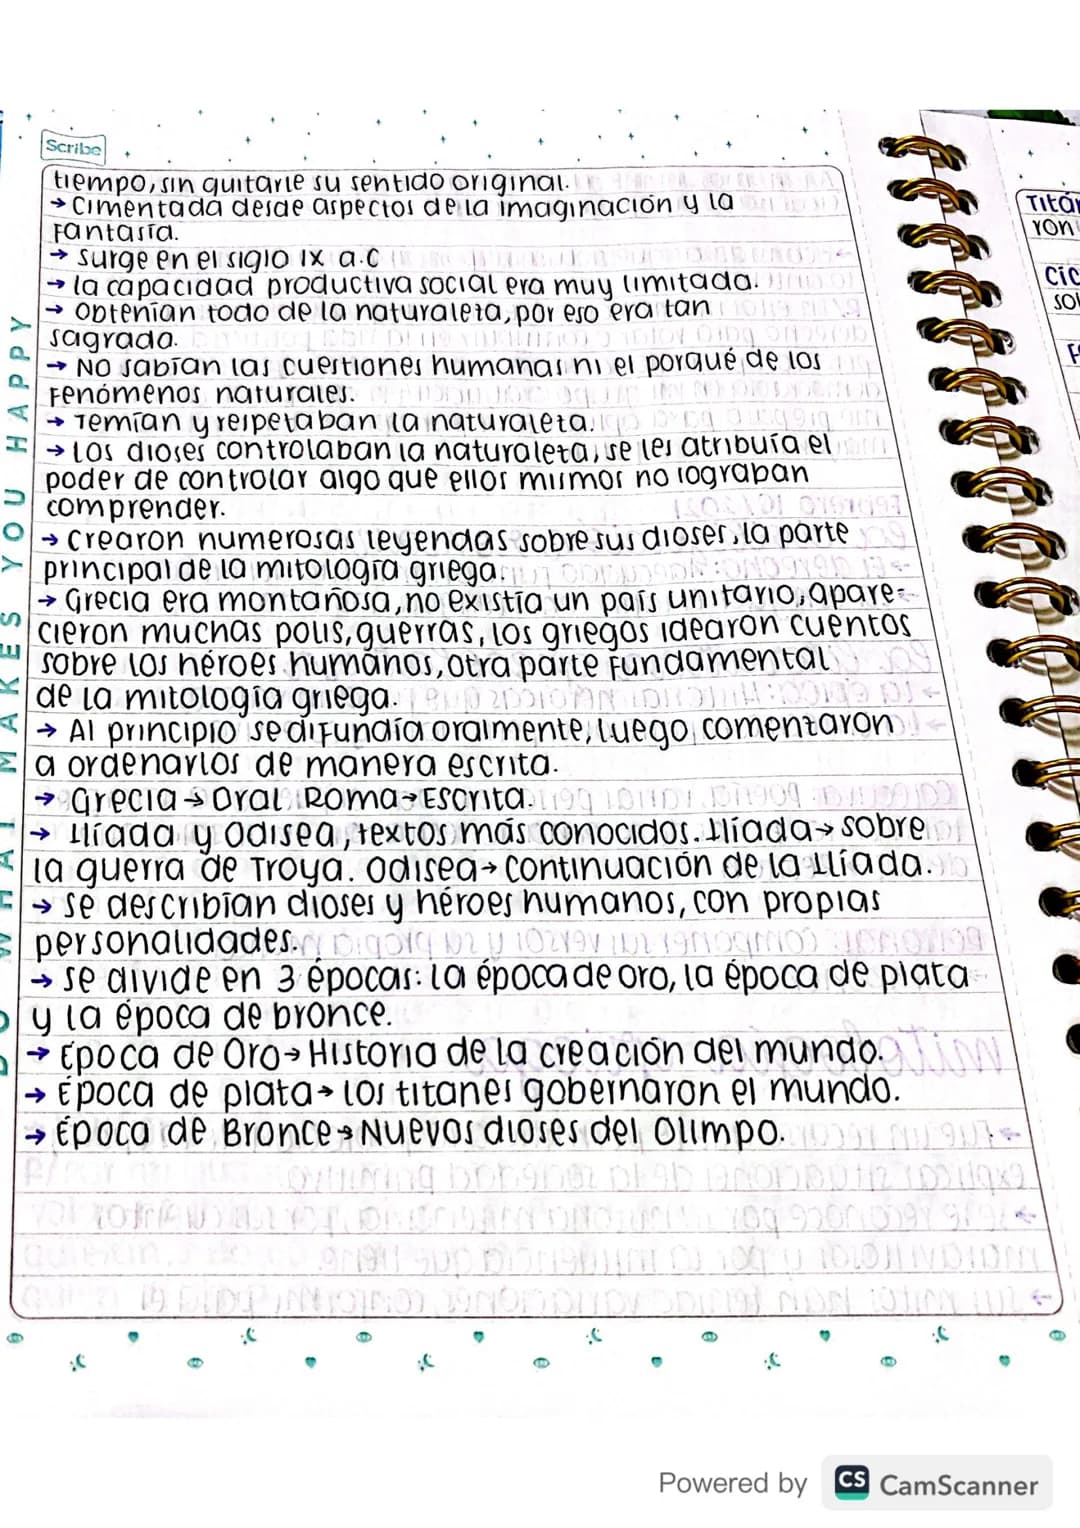 Scribe
tiempo, sin quitarle su sentido original.
→ Cimentada desde aspectos de la imaginación y la
Fantasía.
→ Surge en el siglo IX a.C
→ la capacidad productiva social era muy limitada.
→ Obtenían todo de la naturaleza, por eso era tan
sagrada.
→ No sabían las cuestiones humanas ni el porqué de los
Fenómenos naturales.
→ Temían y respetaban la naturaleza.
→ Los dioses controlaban la naturaleza, se les atribuía el
poder de controlar algo que ellos mismos no lograban
comprender.
→ Crearon numerosas leyendas sobre sus dioses, la parte
principal de la mitología griega.
→ Grecia era montañosa, no existía un país unitario, apare-
cieron muchas polis, guerras, los griegos idearon cuentos
sobre los héroes humanos, otra parte Fundamental
de la mitología griega.
→ Al principio se diFundía oralmente, luego comenzaron
a ordenarlos de manera escrita.
→ Grecia → Oral Roma → Escrita.
→ Ilíada y Odisea, textos más conocidos. Ilíada → sobre
la guerra de Troya. Odisea → Continuación de la Ilíada.
→ Se describían dioses y héroes humanos, con propias
personalidades.
→ Se divide en 3 épocas: la época de oro, la época de plata
y la época de bronce.
→ Época de Oro → Historia de la creación del mundo.
→ Época de plata → los titanes gobernaron el mundo.
→ Época de Bronce → Nuevos dioses del Olimpo.
DO WHAT MAKES YOU HAPPY
Powered by CS CamScanner